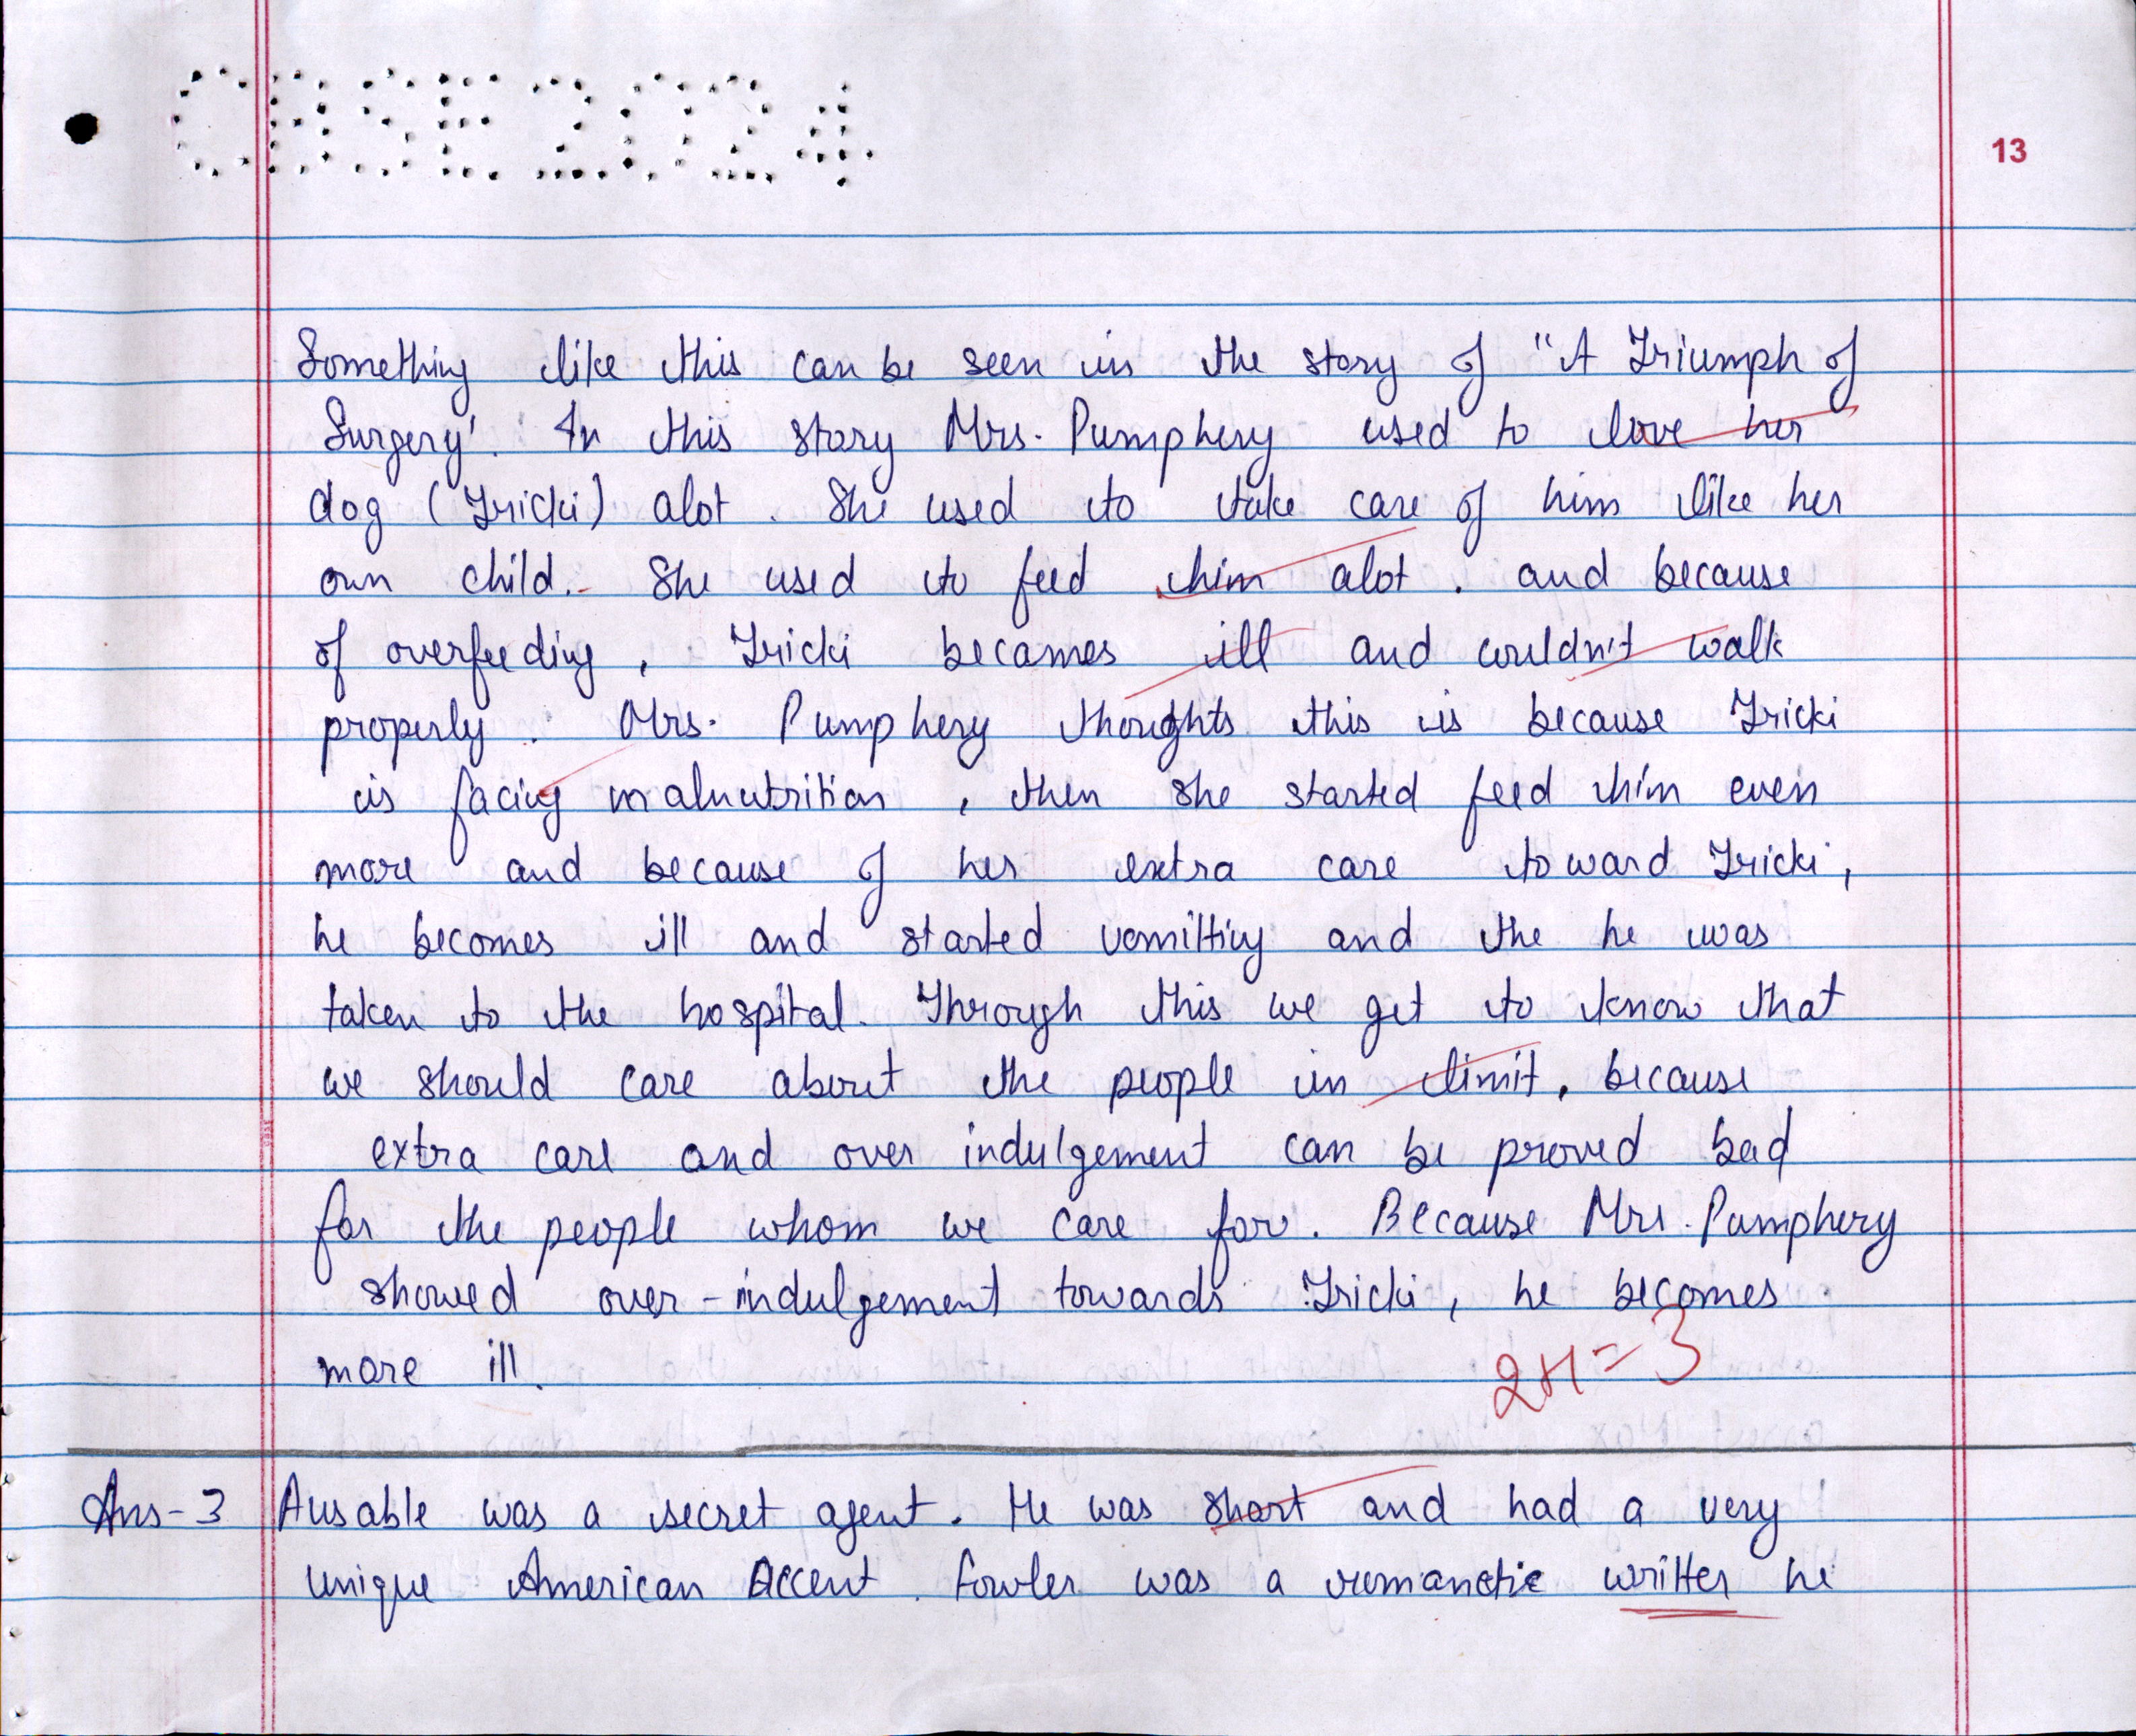 CBSE 2024
13
Something like this can be seen in the story of "A Triumph of
Surgery'. In this story Mrs. Pumphery used to love her
dog (Tricki) alot. She used to take care of him like her
own child. She used to feed him alot. and because
of overfeeding, Tricki becames ill and couldn't walk
properly. Mrs. Pumphery thoughts this is because Tricki
is facing malnutrition, then she started feed him even
more and because of her extra care toward Tricki,
he becomes ill and started vomitting and the he was
taken to the hospital. Through this we get to know that
we should care about the people in limit, because
extra care and over indulgement can be proved bad
for the people whom we care for. Because Mrs. Pumphery
showed over-indulgement towards Tricki, he becomes
more ill.
2+1=3
Ans-3 Ausable was a secret agent. He was short and had a very
unique American Accent. Fowler was a romantic writter he